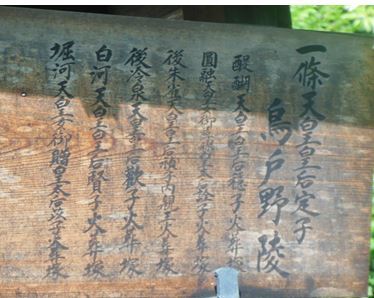 一條天皇皇后定子
鳥戸野陵
醍醐天皇皇后穏子火葬塚
圓融天皇御母贈皇太后 子火葬塚
後朱雀天皇皇后禎子内親王火葬塚
後冷泉天皇皇后歡子火葬塚
白河天皇皇后賢子火葬塚
堀河天皇御母贈皇太后茨子火葬塚